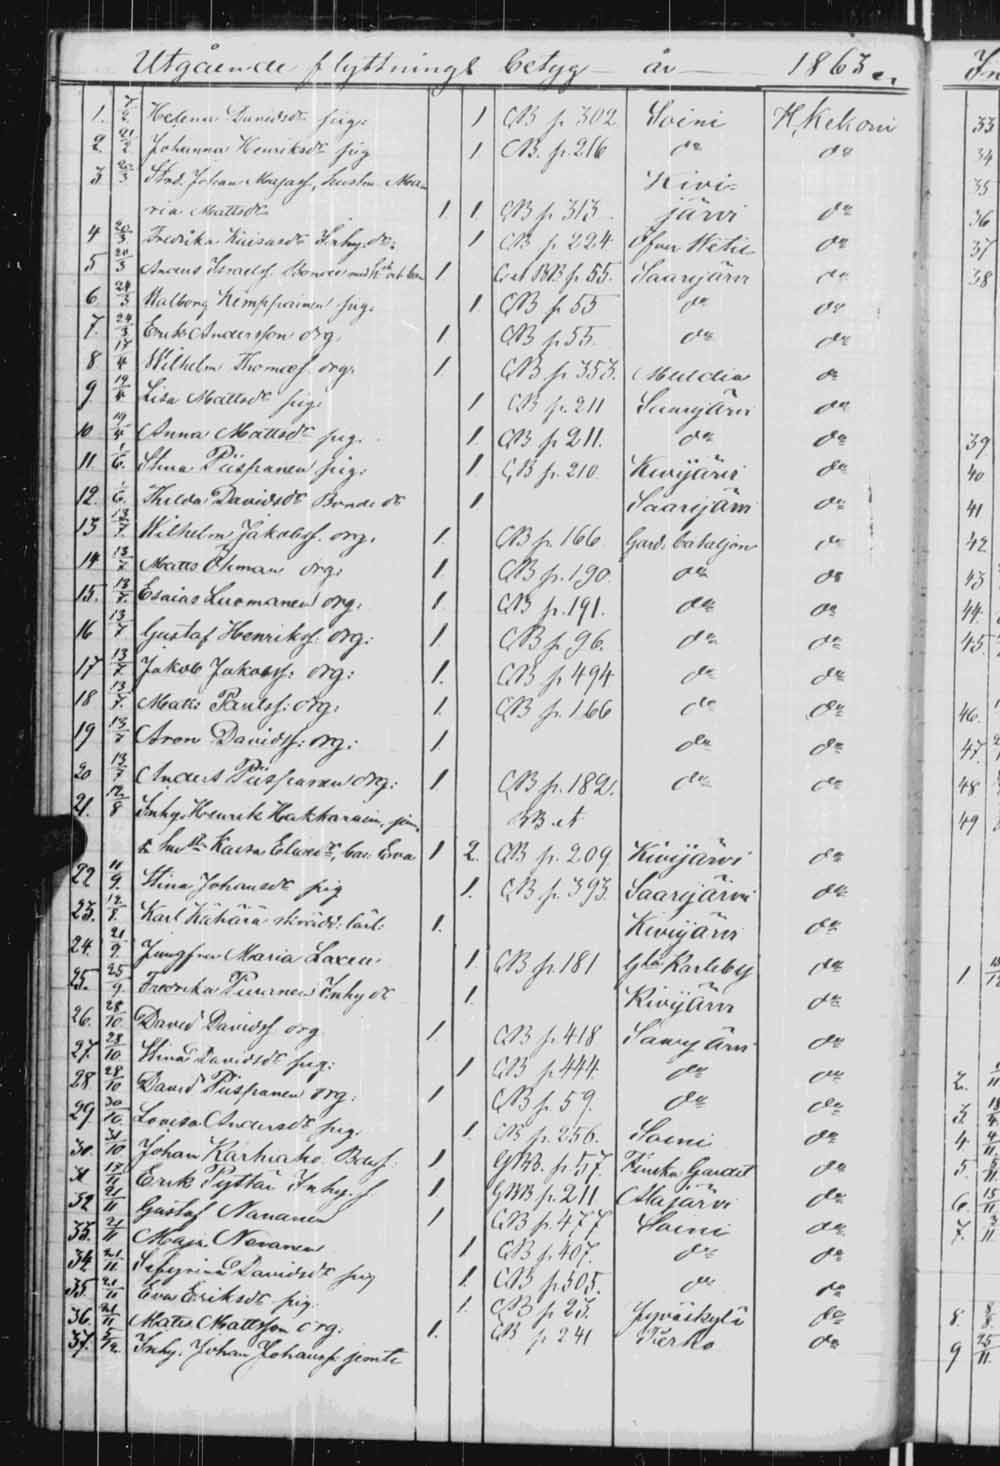 Utgående flyttnings betyg år 1863.
1. 7/2 Helena Davidsdr pig: 1 CB p 302 Soini H, Kekoni
2. 21/2 Johanna Henriksdr pig 1 CB. p. 216 do do
3 20/3 Johan hustru Ma- Kivi-
ria Mattsdr 1. 1. CB p 313. järvi do
4 20/3 Fredrika Inhys. dr: 1 CB p 224 Öfver Wetil do
5 20/3 Anders Israelsf. Bonde 1 BB p. 55. Saarijärvi do
6. 24/3 Walborg Kemppainen pig. 1. CB p 55 do do
7. 24/3 Erik Andersson drg. 1 CB p. 55. do do
8 17/4 Wilhelm Thomasf. drg: 1. CB p. 353. Multia do
9 19/4 Lisa Mattsdr pig. 1 CB p. 211 Saarijärvi do
10 19/4 Anna Mattsdr pig. 1. CB p 211. do do
11. 1/6. Stina Piispanen pig: 1. CB p. 210. Kivijärvi do
12. 1/6. Davidsdr Bonde dr 1 Saarijärvi do
13 13/7. Wilhelm Jakobsf. drg. 1. CB p. 166 Gard. bataljon do
14 13/7 Matts Öhman drg: 1. CB p. 190. do do
15. 13/7. Esaias Luomanen drg: 1. CB p. 191. do do
16 13/7 Gustaf Henriksf. drg: 1. CB p. 96. do do
17 13/7 Jakob Jakobsf: drg: 1. CB p 494 do do
18 13/7. Matts Paulsf: drg. 1. CB p. 166 do do
19 13/7 Aron Davidsf: drg: 1 do do
20 13/7 Anders Piispanen drg: 1 CB p. 182. do do
21. 12/8 Inhys. Henrik Hakkarain,
Kaisa Eliaedr, Eva 1 2. CB p. 209 Kivijärvi do
22 11/9. Stina Johansdr pig 1. CB p. 393. Saarijärvi do
23. 12/8. Karl Kähärä skräd: lärl: 1. Kivijärvi do
24. 21/9. Jungfru Maria Laxen 1. CB p. 181 Gla Karleby do
25. 25/9 Fredrika Inhys dr 1. Kivijärvi do
26. 28/10 David Davidsf drg. 1 CB p. 418 Saarijärvi do
27. 28/10 Stina Davidsdr pig: 1 CB p. 444 do do
28. 28/10 David Piispanen drg: 1 CB p 59. do do
29. 30/10. Lovisa Andersdr pig. 1. CB p. 256. Soini do
30. 31/10 Johan Karhuaho 1 GBB. p. 57. Finska Gardet do
31 18/11 Erik Pyttäi Inhys. f 1 GBB p. 211 Alajärvi do
32 21/11 Gustaf Navanen 1 CB p. 477 Soini do
33. 21/11 Maja Navanen 1 CB p. 407. do do
34. 21/11 Davidsdr pig 1. CB p. 305. do do
35. 21/11 Eva Eriksdr pig. 1. CB p 23. Jyväskylä do
36. 21/11 Matts Mattsson drg: 1. CB p 241 Perho do
37. 5/12. Inhys. Johan Johansf. jemte
In
33
34
35
36
37
38
39
40
41
42
43
44.
45.
46.
47.
48
49
1
2.
3.
4.
5.
6.
7.
8.
9